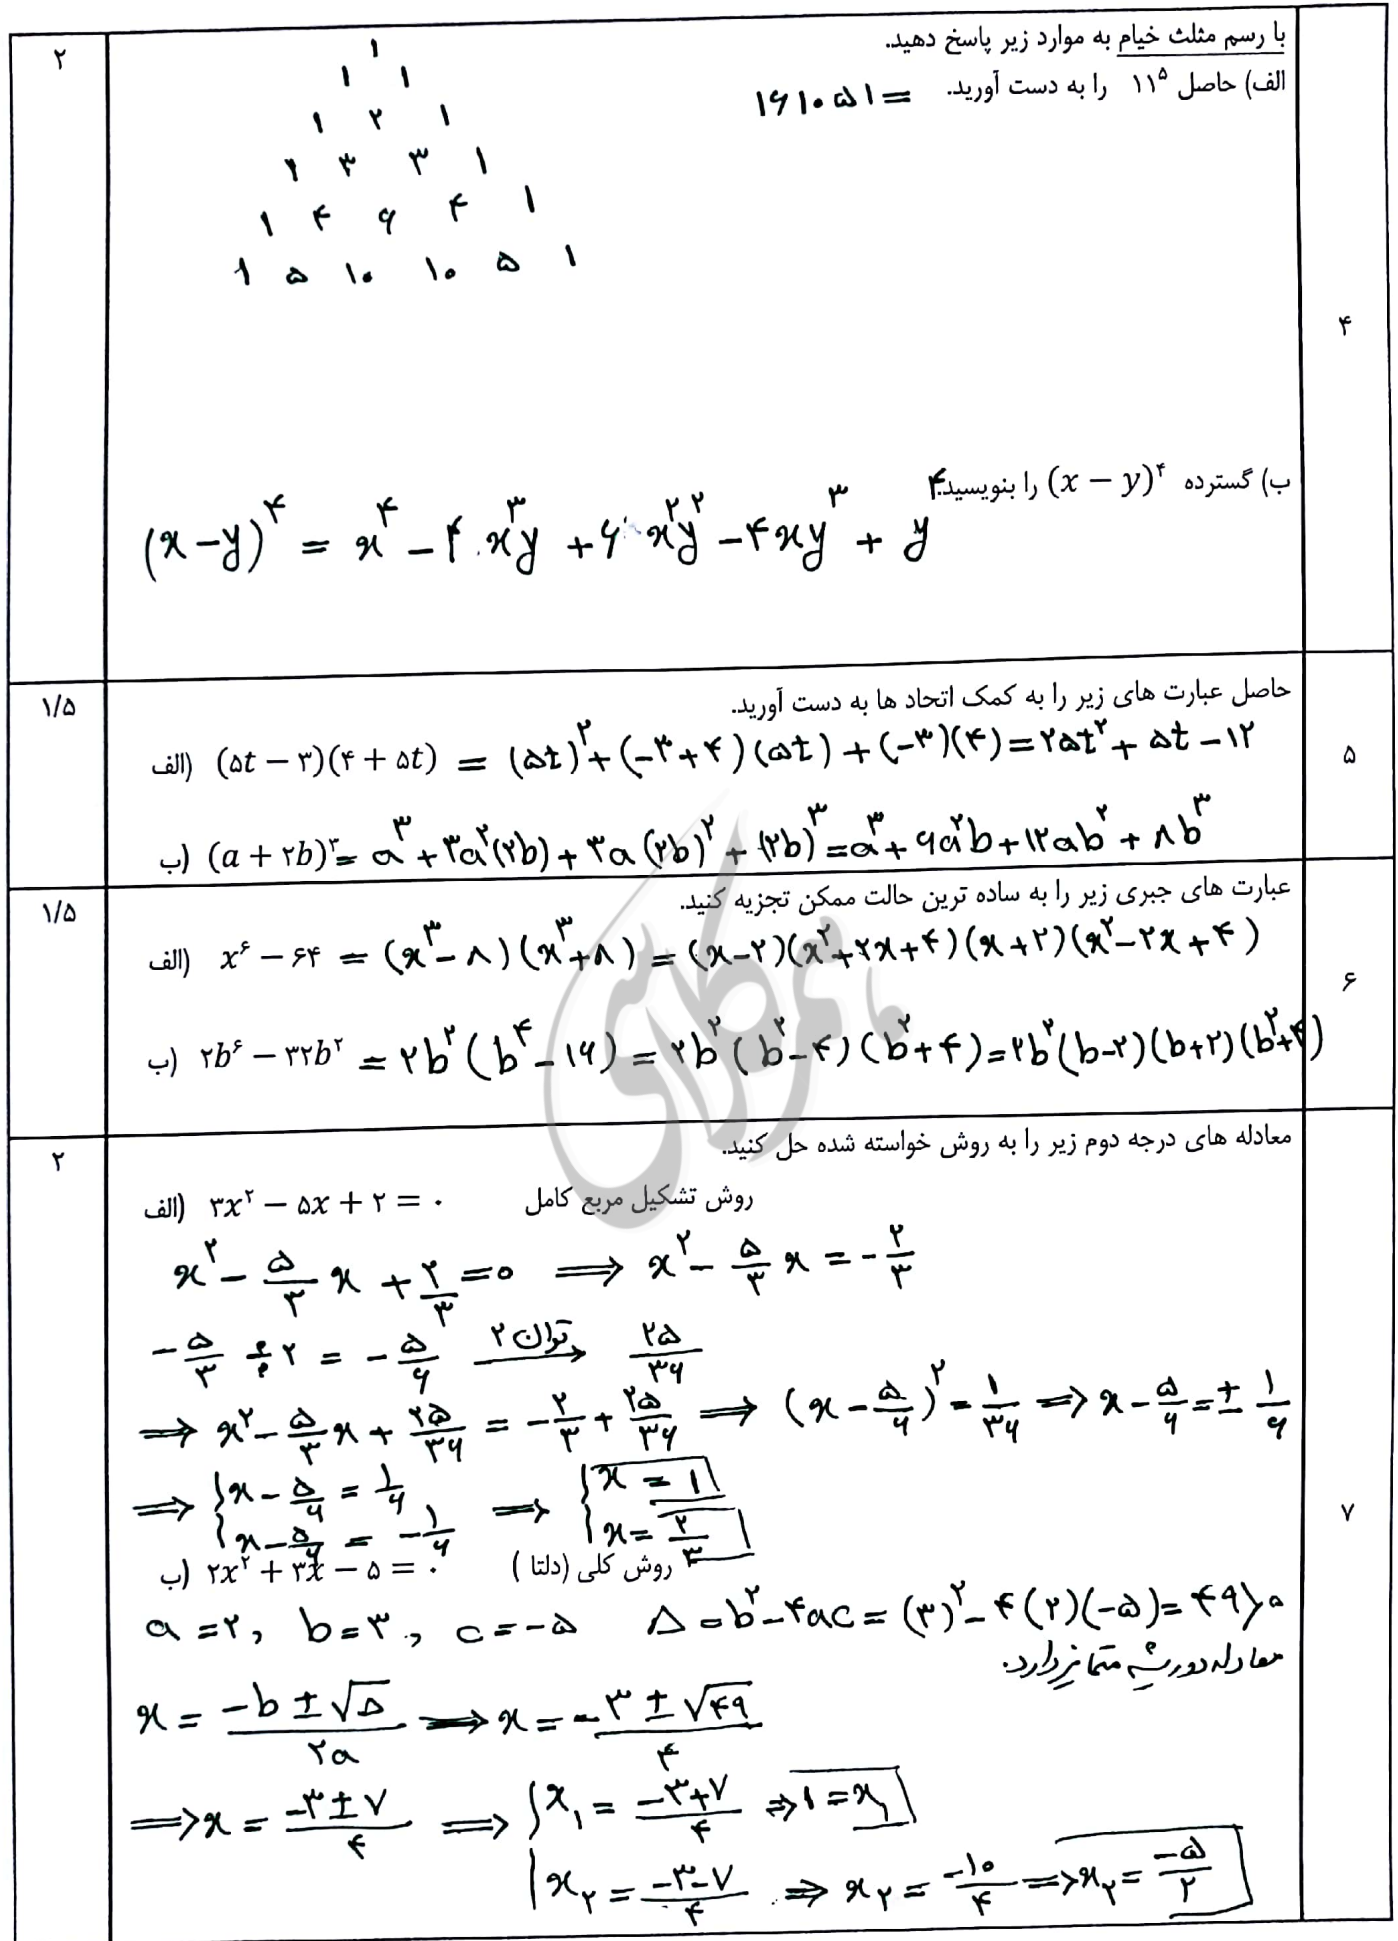 ۴
با رسم مثلث خیام به موارد زیر پاسخ دهید.
۲
الف) حاصل ۱۱^۵ را به دست آورید. = ۱۶۱۰۵۱
۱
۱ ۱
۱ ۲ ۱
۱ ۳ ۳ ۱
۱ ۴ ۶ ۴ ۱
۱ ۵ ۱۰ ۱۰ ۵ ۱
ب) گسترده (x − y)^۴ را بنویسید.
(x − y)^۴ = x^۴ − ۴x^۳y + ۶x^۲y^۲ − ۴xy^۳ + y^۴
۵
حاصل عبارت های زیر را به کمک اتحاد ها به دست آورید.
۱/۵
الف) (۵t − ۳)(۴ + ۵t) = (۵t)^۲ + (−۳+۴)(۵t) + (−۳)(۴) = ۲۵t^۲ + ۵t − ۱۲
ب) (a + ۲b)^۳ = a^۳ + ۳a^۲(۲b) + ۳a(۲b)^۲ + (۲b)^۳ = a^۳ + ۶a^۲b + ۱۲ab^۲ + ۸b^۳
۶
عبارت های جبری زیر را به ساده ترین حالت ممکن تجزیه کنید.
۱/۵
الف) x^۶ − ۶۴ = (x^۳ − ۸)(x^۳ + ۸) = (x−۲)(x^۲+۲x+۴)(x+۲)(x^۲−۲x+۴)
ب) ۲b^۶ − ۳۲b^۲ = ۲b^۲(b^۴ − ۱۶) = ۲b^۲(b^۲−۴)(b^۲+۴) = ۲b^۲(b−۲)(b+۲)(b^۲+۴)
۷
معادله های درجه دوم زیر را به روش خواسته شده حل کنید.
۲
الف) ۳x^۲ − ۵x + ۲ = ۰ روش تشکیل مربع کامل
x^۲ − ۵/۳ x + ۲/۳ = ۰ ⟹ x^۲ − ۵/۳ x = −۲/۳
−۵/۳ ÷ ۲ = −۵/۶ توان ۲ → ۲۵/۳۶
⟹ x^۲ − ۵/۳ x + ۲۵/۳۶ = −۲/۳ + ۲۵/۳۶ ⟹ (x − ۵/۶)^۲ = ۱/۳۶ ⟹ x − ۵/۶ = ± ۱/۶
⟹ { x − ۵/۶ = ۱/۶ ⟹ { x = ۱
x − ۵/۶ = −۱/۶ x = ۲/۳
ب) ۲x^۲ + ۳x − ۵ = ۰ روش کلی (دلتا )
a = ۲, b = ۳, c = −۵ Δ = b^۲ − ۴ac = (۳)^۲ − ۴(۲)(−۵) = ۴۹ > ۰
معادله دو ریشه متمایز دارد.
x = (−b ± √Δ)/۲a ⟹ x = (−۳ ± √۴۹)/۴
⟹ x = (−۳ ± ۷)/۴ ⟹ { x₁ = (−۳+۷)/۴ ⟹ ۱ = x₁
x₂ = (−۳−۷)/۴ ⟹ x₂ = −۱۰/۴ ⟹ x₂ = −۵/۲
همکلاسی